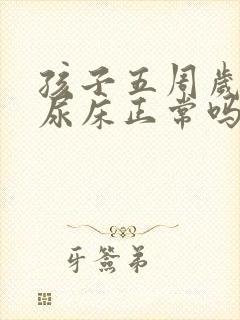 孩子五周岁
尿床正常吗
牙签弟